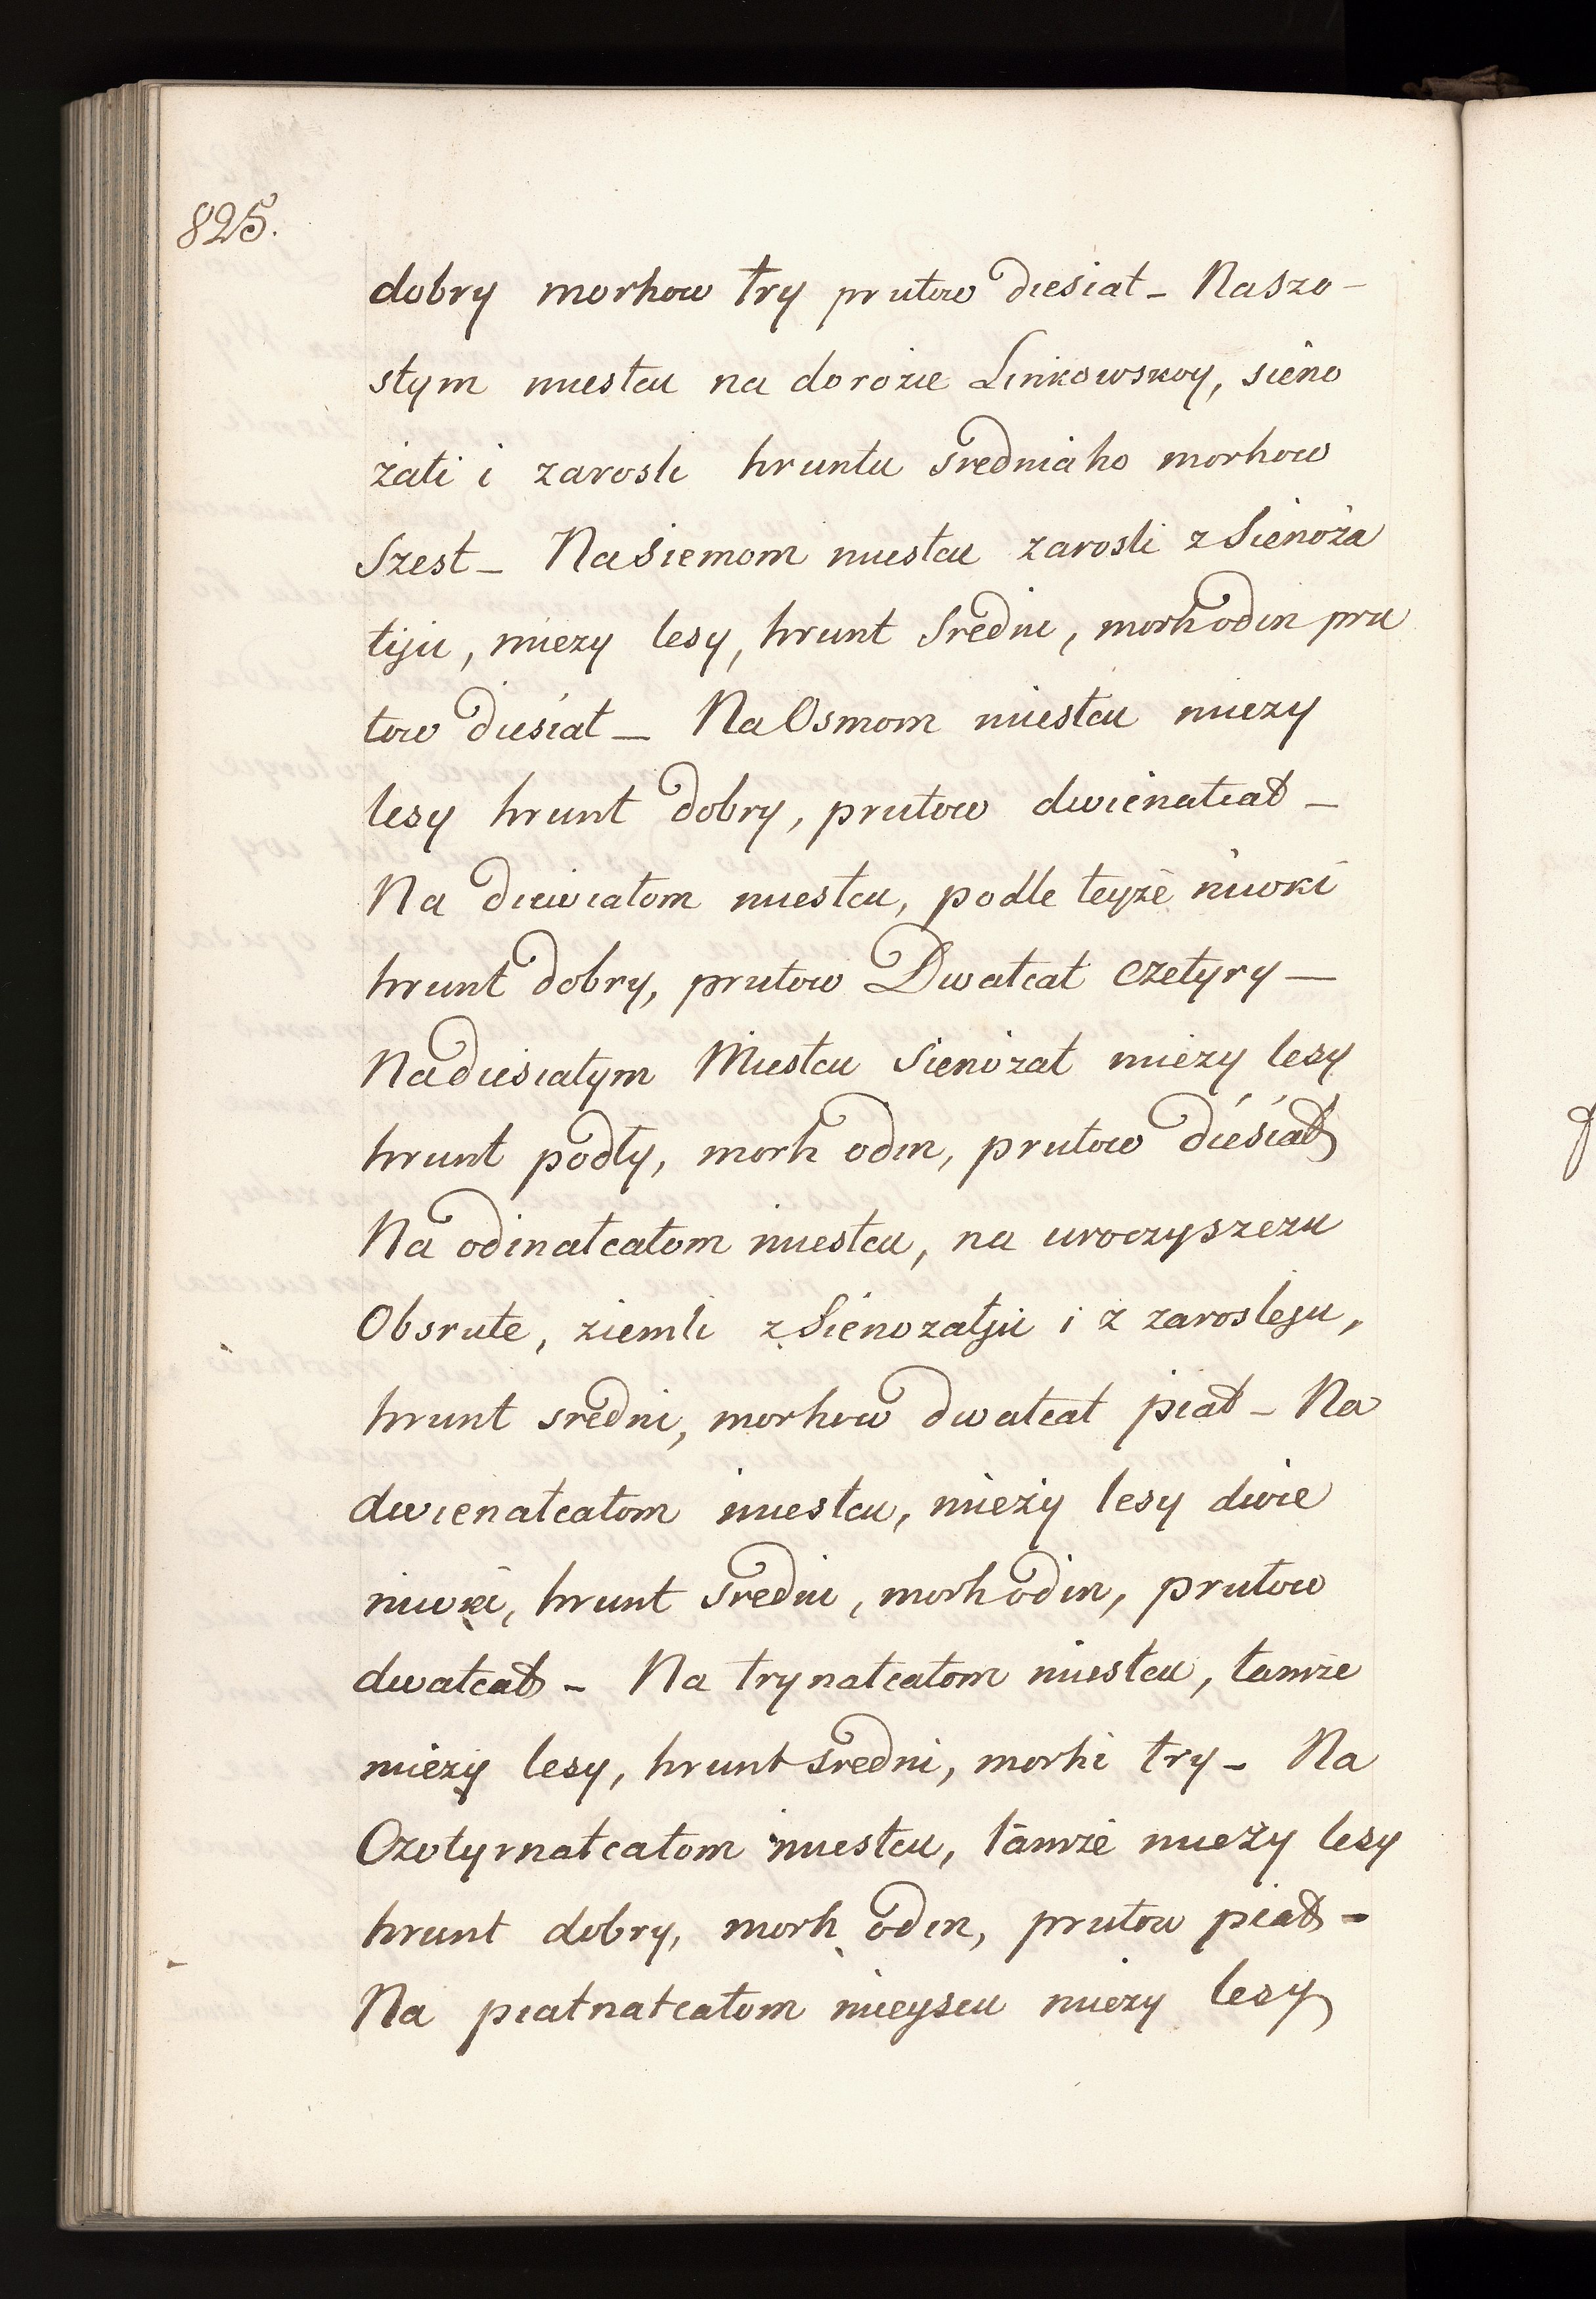 825.
dobry morhow try prutow diesiat – Naszo-
stym miestcu na dorożie Linkowskoy, sieno
żati i zarosli hruntu średniaho morhow
szest – Nasiemom miestcu zarosli z sienoża
tiju, mieży lesy, hrunt średni, morh odin pru
tow diesiat – Na Osmom miestcu mieży
lesy hrunt dobry, prutow dwienatcat –
Na diewiatom miestcu, podle teyże niwki
hrunt dobry, prutow Dwatcat czetyry –
Nadiesiatym Miestcu sienożat mieży lesy
hrunt podły, morh odin, prutow diesiat
Na odinatcatom miestcu, na uroczyszczu
Obsrute, ziemli z sienożatju i z zarosleju,
hrunt sredni, morhow dwatcat piat – Na
dwienatcatom miestcu, mieży lesy dwie
niwki, hrunt średni, morh odin, prutow
dwatcat – Na trynatcatom miestcu, tamże
mieży lesy, hrunt sredni, morhi try – Na
Czotyrnatcatom miestcu, tamże mieży lesy
hrunt dobry, morh odin, prutow piat –
Na piatnatcatom mieyscu mieży lesy